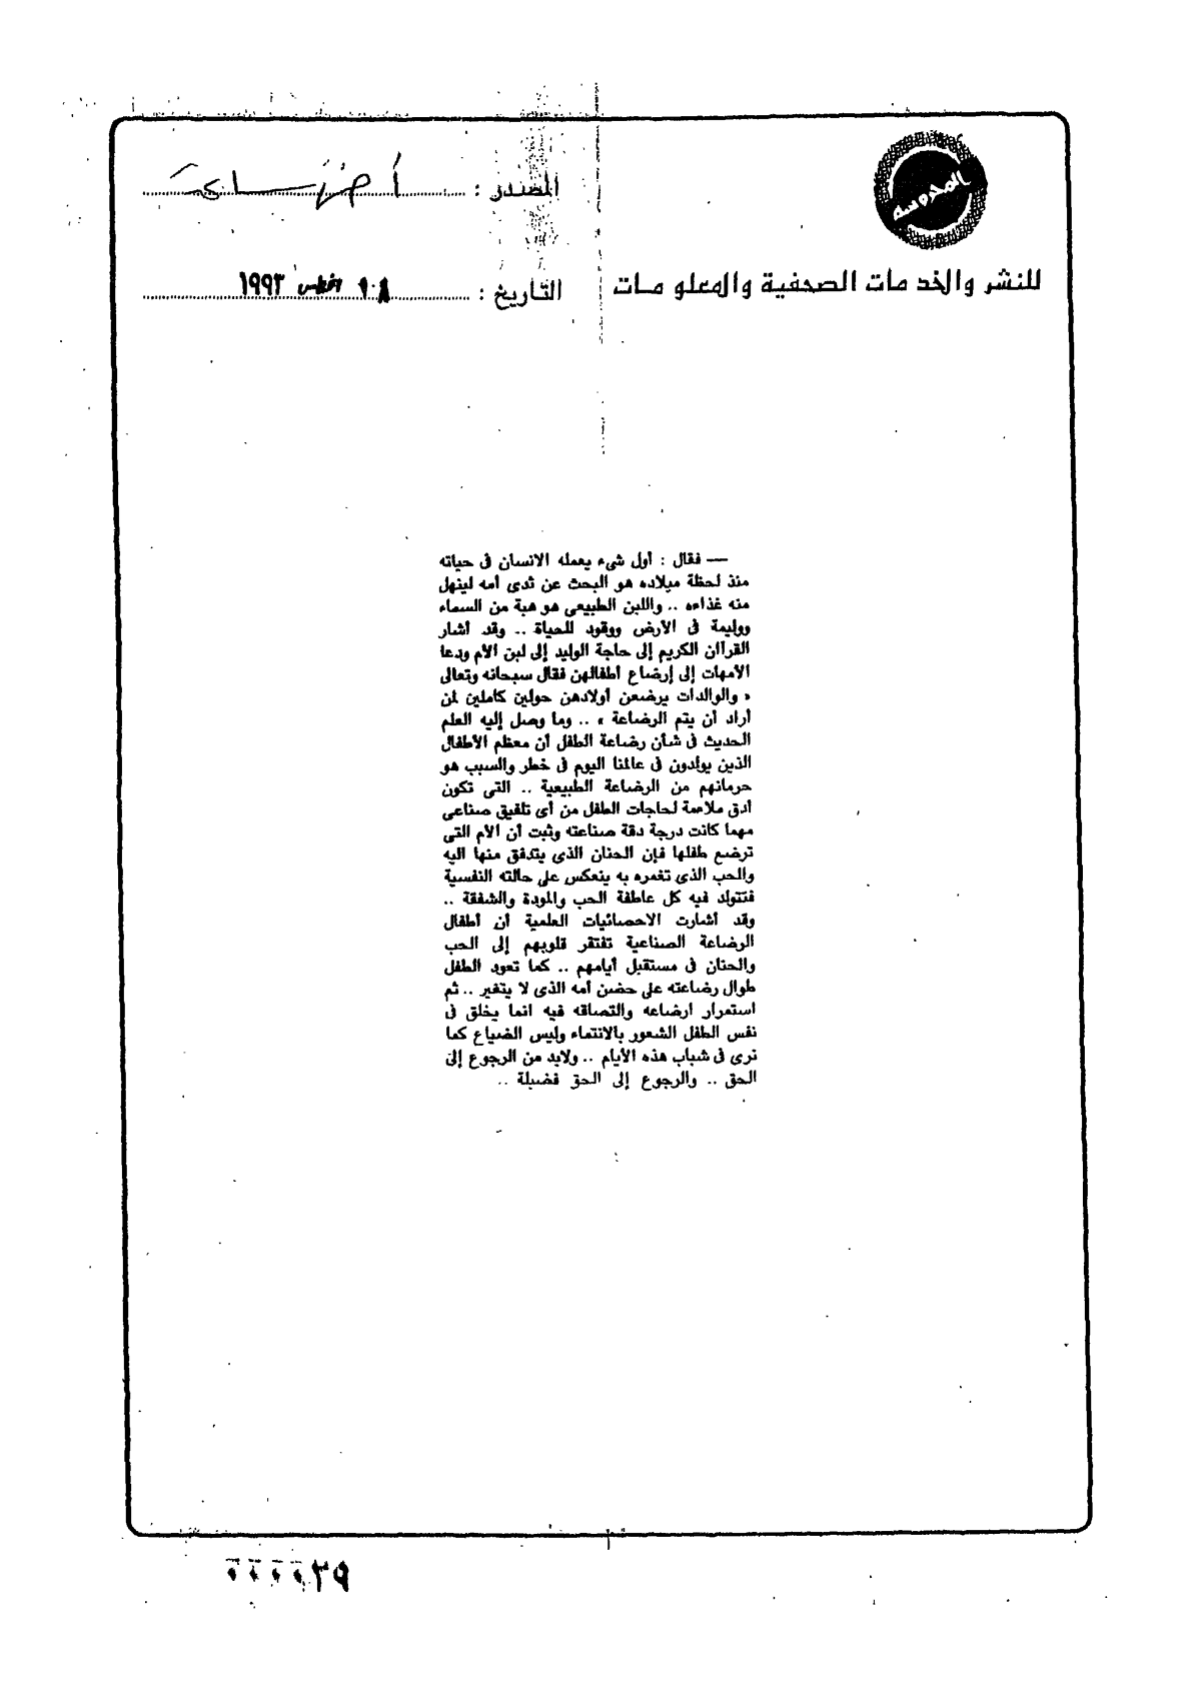 المحروسه
للنشر والخدمات الصحفية والمعلومات
المصدر :
التاريخ : أغسطس ١٩٩٣
— فقال : أول شىء يعمله الانسان فى حياته
منذ لحظة ميلاده هو البحث عن ثدى أمه لينهل
منه غذاءه .. واللبن الطبيعى هو هبة من السماء
ووليمة فى الأرض ووقود للحياة .. وقد أشار
القرآان الكريم إلى حاجة الوليد إلى لبن الأم ودعا
الأمهات إلى إرضاع أطفالهن فقال سبحانه وتعالى
« والوالدات يرضعن أولادهن حولين كاملين لمن
أراد أن يتم الرضاعة » .. وما وصل إليه العلم
الحديث فى شأن رضاعة الطفل أن معظم الأطفال
الذين يولدون فى عالمنا اليوم فى خطر والسبب هو
حرمانهم من الرضاعة الطبيعية .. التى تكون
أدق ملاءمة لحاجات الطفل من أى تلفيق صناعى
مهما كانت درجة دقة صناعته وثبت أن الأم التى
ترضع طفلها فإن الحنان الذى يتدفق منها اليه
والحب الذى تغمره به ينعكس على حالته النفسية
فتتولد فيه كل عاطفة الحب والمودة والشفقة ..
وقد أشارت الاحصائيات العلمية أن أطفال
الرضاعة الصناعية تفتقر قلوبهم إلى الحب
والحنان فى مستقبل أيامهم .. كما تعود الطفل
طوال رضاعته على حضن أمه الذى لا يتغير .. ثم
استمرار ارضاعه والتصاقه فيه انما يخلق فى
نفس الطفل الشعور بالانتماء وليس الضياع كما
نرى فى شباب هذه الأيام .. ولابد من الرجوع إلى
الحق .. والرجوع إلى الحق فضيلة ..
٠٠٠٠٣٩